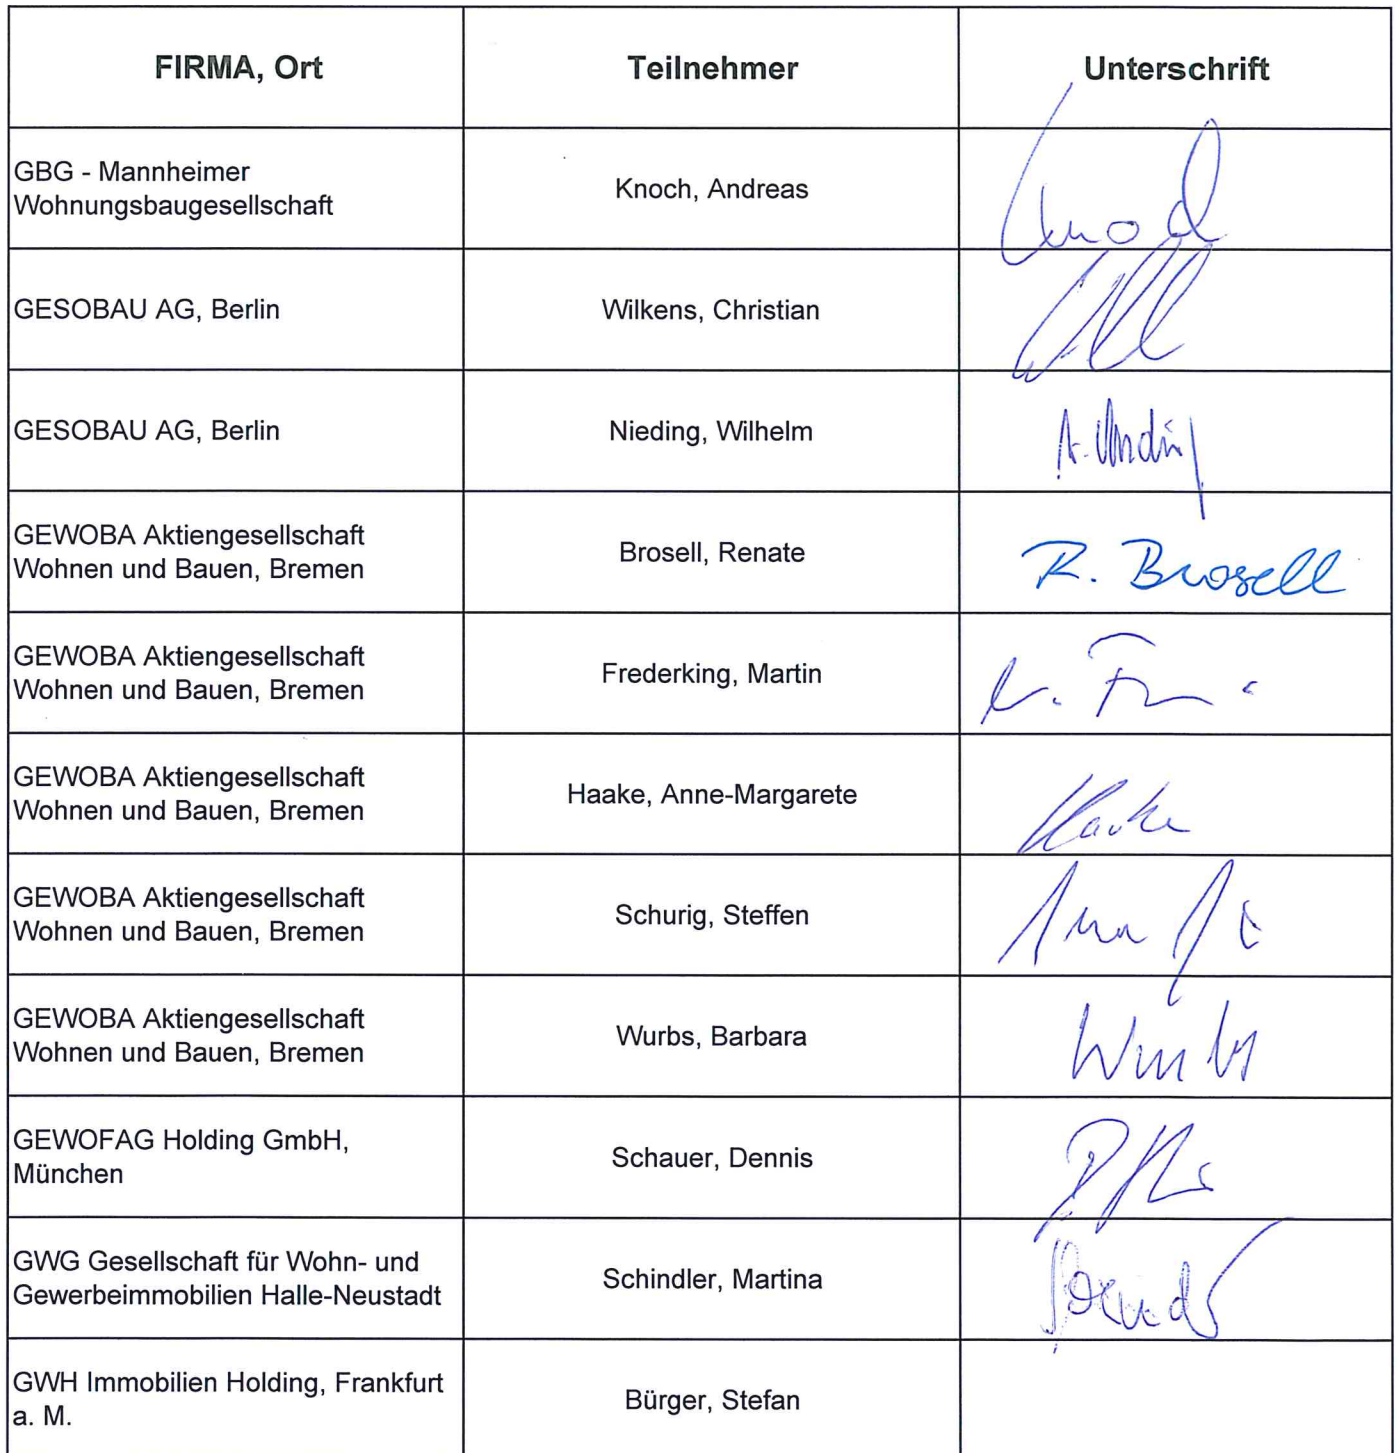 FIRMA, Ort
Teilnehmer
Unterschrift
GBG - Mannheimer
Wohnungsbaugesellschaft
Knoch, Andreas
GESOBAU AG, Berlin
Wilkens, Christian
GESOBAU AG, Berlin
Nieding, Wilhelm
GEWOBA Aktiengesellschaft
Wohnen und Bauen, Bremen
Brosell, Renate
R. Brosell
GEWOBA Aktiengesellschaft
Wohnen und Bauen, Bremen
Frederking, Martin
GEWOBA Aktiengesellschaft
Wohnen und Bauen, Bremen
Haake, Anne-Margarete
Haake
GEWOBA Aktiengesellschaft
Wohnen und Bauen, Bremen
Schurig, Steffen
GEWOBA Aktiengesellschaft
Wohnen und Bauen, Bremen
Wurbs, Barbara
Wurbs
GEWOFAG Holding GmbH,
München
Schauer, Dennis
GWG Gesellschaft für Wohn- und
Gewerbeimmobilien Halle-Neustadt
Schindler, Martina
GWH Immobilien Holding, Frankfurt
a. M.
Bürger, Stefan